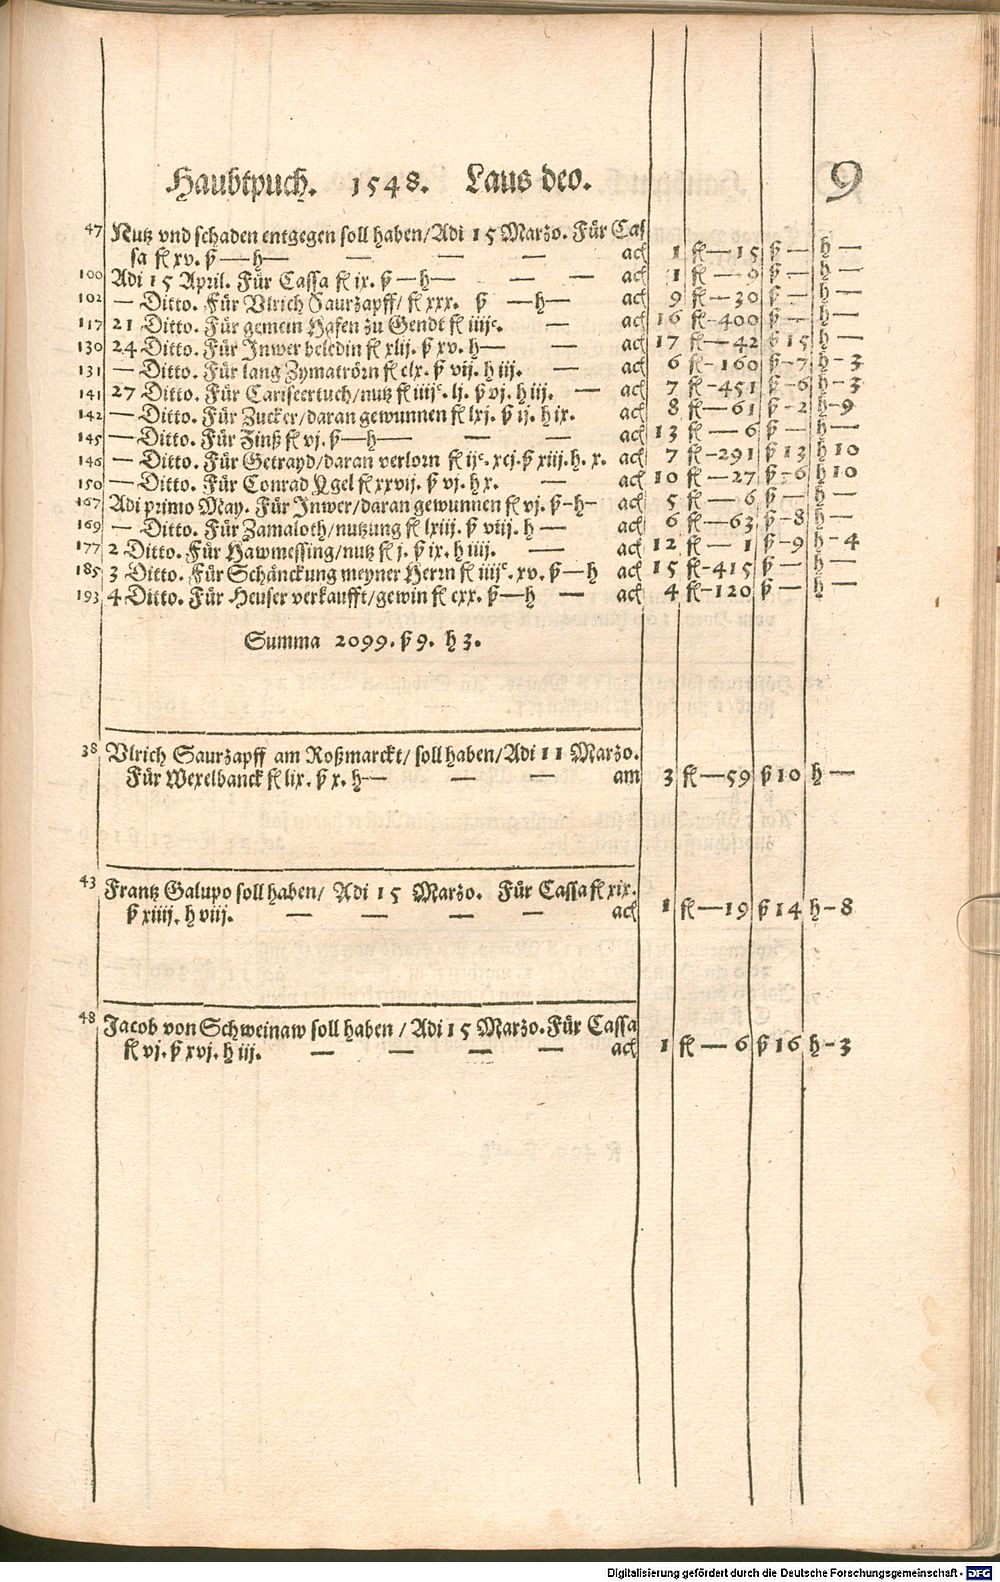 Haubtpuch. 1548. Laus deo. 9
47 Nutz vnd schaden entgegen soll haben/Adi 15 Marzo. Für Cas
sa fl xv. ß — h — — — — ach 1 fl — 15 ß — h —
100 Adi 15 April. Für Cassa fl ix. ß — h — — — ach 1 fl — 9 ß — h —
102 — Ditto. Für Vlrich Saurzapff/ fl xxx. ß — h — ach 9 fl — 30 ß — h —
117 21 Ditto. Für gemein Hafen zu Gendt fl iiijc. — ach 16 fl - 400 ß — h —
130 24 Ditto. Für Inwer beledin fl xlij. ß xv. h — — ach 17 fl — 42 ß 15 h —
131 — Ditto. Für lang Zymatrörn fl clx. ß vij. h iij. — ach 6 fl - 160 ß - 7 h - 3
141 27 Ditto. Für Cariseertuch/nutz fl iiijc. lj. ß vj. h iij. — ach 7 fl - 451 ß - 6 h - 3
142 — Ditto. Für Zucker/daran gewunnen fl lxj. ß ij. h ix. ach 8 fl — 61 ß - 2 h - 9
145 — Ditto. Für Zinß fl vj. ß — h — — — ach 13 fl — 6 ß — h —
146 — Ditto. Für Getrayd/daran verlorn fl ijc. xcj. ß xiij. h. x. ach 7 fl - 291 ß 13 h 10
150 — Ditto. Für Conrad Ygel fl xxvij. ß vj. h x. — ach 10 fl — 27 ß - 6 h 10
167 Adi primo May. Für Inwer/daran gewunnen fl vj. ß - h - ach 5 fl — 6 ß — h —
169 — Ditto. Für Zamaloth/nutzung fl lxiij. ß viij. h — ach 6 fl — 63 ß - 8 h —
177 2 Ditto. Für Hawmessing/nutz fl j. ß ix. h iiij. — ach 12 fl — 1 ß - 9 h - 4
185 3 Ditto. Für Schänckung meyner Herrn fl iiijc. xv. ß — h ach 15 fl - 415 ß — h —
193 4 Ditto. Für Heuser verkaufft/gewin fl cxx. ß — h — ach 4 fl - 120 ß — h —
Summa 2099. ß 9. h 3.
38 Vlrich Saurzapff am Roßmarckt/ soll haben/Adi 11 Marzo.
Für Wexelbanck fl lix. ß x. h — — — am 3 fl — 59 ß 10 h —
43 Frantz Galupo soll haben/ Adi 15 Marzo. Für Cassa fl xix.
ß xiiij. h viij. — — — — ach 1 fl — 19 ß 14 h - 8
48 Jacob von Schweinaw soll haben / Adi 15 Marzo. Für Cassa
fl vj. ß xvj. h iij. — — — — ach 1 fl — 6 ß 16 h - 3
Digitalisierung gefördert durch die Deutsche Forschungsgemeinschaft - DFG